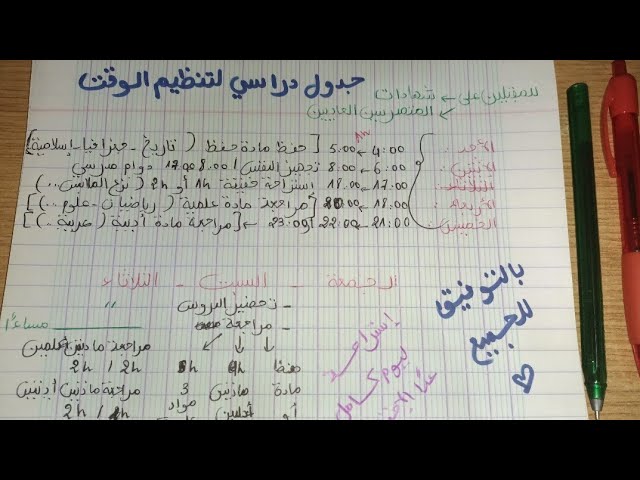 جدول دراسي لتنظيم الوقت
للمقبلين على ← شهادات
← المتمدرسين العاديين
الأحد :
الإثنين :
الثلاثاء :
الأربعاء :
الخميس :
4:00 ← 5:00 AM [حفظ مادة حفظ ( تاريخ - جغرافيا - إسلامية)]
6:00 ← 8:00 تجهيز النفس / 8:00 17:00 دوام مدرسي
17:00 ← 18:00 إستراحة خفيفة 1h أو 2h ( نزع الملابس ...)
18:00 ← 20:00 [مراجعة مادة علمية ( رياضيات - علوم ...)]
21:00 ← 22:00 أو 23:00 ← [مراجعة مادة أدبية ( عربية ..)]
الجمعة - السبت - الثلاثاء
- تحضير الدروس "
- مراجعة مساءًا
حفظ 4h مراجعة مادتين علميتين
2h / 2h
مادة مادتين 3 مواد مراجعة مادتين أدبيتين
أو 2h / 2h
إستراحة
ليوم كامل
بالتوفيق
للجميع
♡